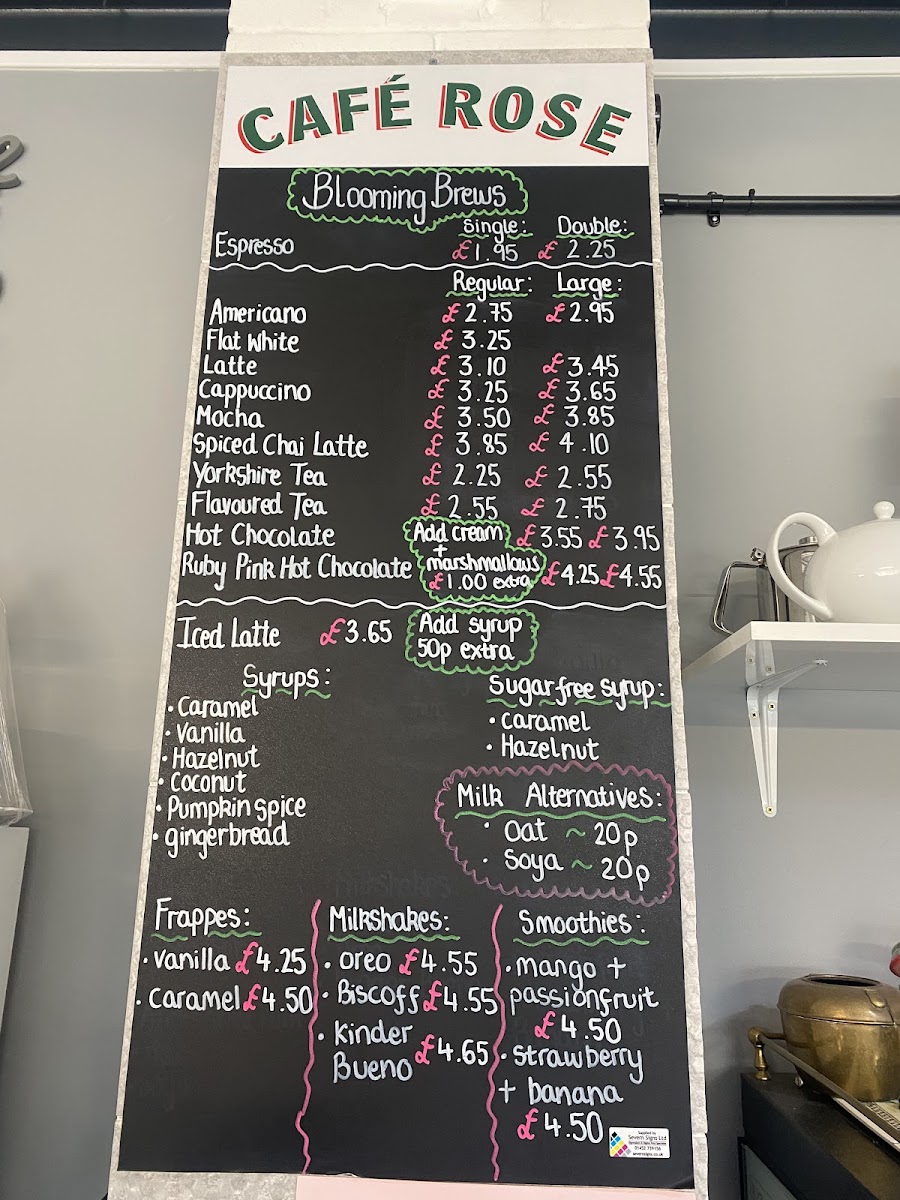 CAFÉ ROSE
Blooming Brews
Single: Double:
Espresso £1.95 £2.25
Regular: Large:
Americano £2.75 £2.95
Flat White £3.25
Latte £3.10 £3.45
Cappuccino £3.25 £3.65
Mocha £3.50 £3.85
Spiced Chai Latte £3.85 £4.10
Yorkshire Tea £2.25 £2.55
Flavoured Tea £2.55 £2.75
Hot Chocolate £3.55 £3.95
Ruby Pink Hot Chocolate £4.25 £4.55
Add cream
+
marshmallows
£1.00 extra
Iced Latte £3.65
Add syrup
50p extra
Syrups:
• Caramel
• Vanilla
• Hazelnut
• Coconut
• Pumpkin spice
• gingerbread
Sugarfree syrup:
• caramel
• Hazelnut
Milk Alternatives:
• Oat ~ 20p
• Soya ~ 20p
Frappes:
• vanilla £4.25
• caramel £4.50
Milkshakes:
• Oreo £4.55
• Biscoff £4.55
• Kinder
Bueno £4.65
Smoothies:
• mango +
passionfruit
£4.50
• strawberry
+ banana
£4.50
Supplied by
Severn Signs Ltd